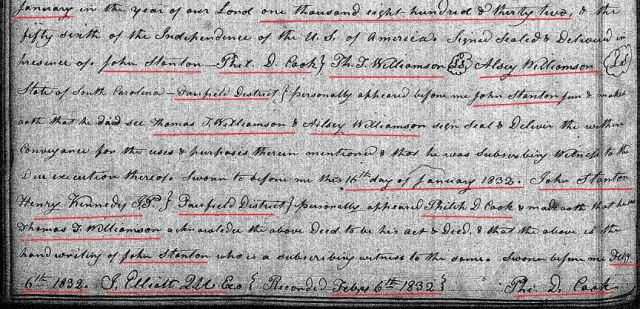 January in the year of our Lord one thousand eight hundred & thirty two, & the
fifty sixth of the Independence of the U.S. of America. Signed Sealed & Delivered in
presence of John Stanton – Phe. D. Cook } Th. T. Williamson LS Alsey Williamson LS
State of South Carolina – Fairfield District } personally appeared before me John Stanton & makes
oath that he did see Thomas T. Williamson & Ailsey Williamson sign Seal & Deliver the within
Conveyance for the uses & purposes therein mentioned & that he was Subscribing Witness to the
Due execution thereof Sworn to before me this 16th day of January 1832. John Stanton
Henry Kennedy JP } Fairfield District } personally appeared D Cook & made oath that he
Thomas T. Williamson acknowledge the above Deed to be his act & Deed. & that the above is the
hand writing of John Stanton who is a subscribing witness to the same Sworn before me Feby
6th 1832. J. Elliott { Recorded Feby 6th 1832 } Phe. D. Cook